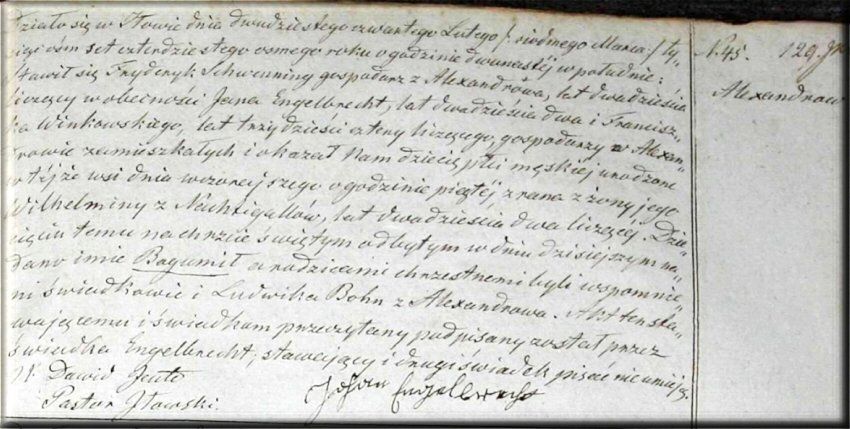 Działo się w Iłowie dnia dwudziestego czwartego Lutego /: siódmego Marca :/ ty„
siąc ośm set czterdziestego osmego roku o godzinie dwunastéj w południe:
Stawił się Fryderyk Schwenning gospodarz z Alexandrowa, lat dwadzieścia
liczący w obecności Jana Engelbrecht, lat dwadzieścia dwa i Francisz„
ka Winkowskiego, lat trzydzieści cztery liczącego, gospodarzy w Alexan„
drowie zamieszkałych i okazał Nam dziecię płci męskiej urodzone
w téjże wsi dnia wczorejszego o godzinie piątéj z rana z żony jego
Wilhelminy z Nachtigallów, lat dwadzieścia dwa liczącéj. Dzie„
cięciu temu na chrzcie świętym odbytym w dniu dzisiejszym na„
dano imie Bogumił a rodzicami chrzestnemi byli wspomnie„
ni świadkowie i Ludwika Bohn z Alexandrowa. Akt ten sta„
wającemu i świadkom przeczytany podpisany został przez
świadka Engelbrecht, stawający i drugi świadek pisać nie umieją.
Dawid
Pastor Iłowski.
Johan Engelbrecht
N. 45.
129.
Alexandrow